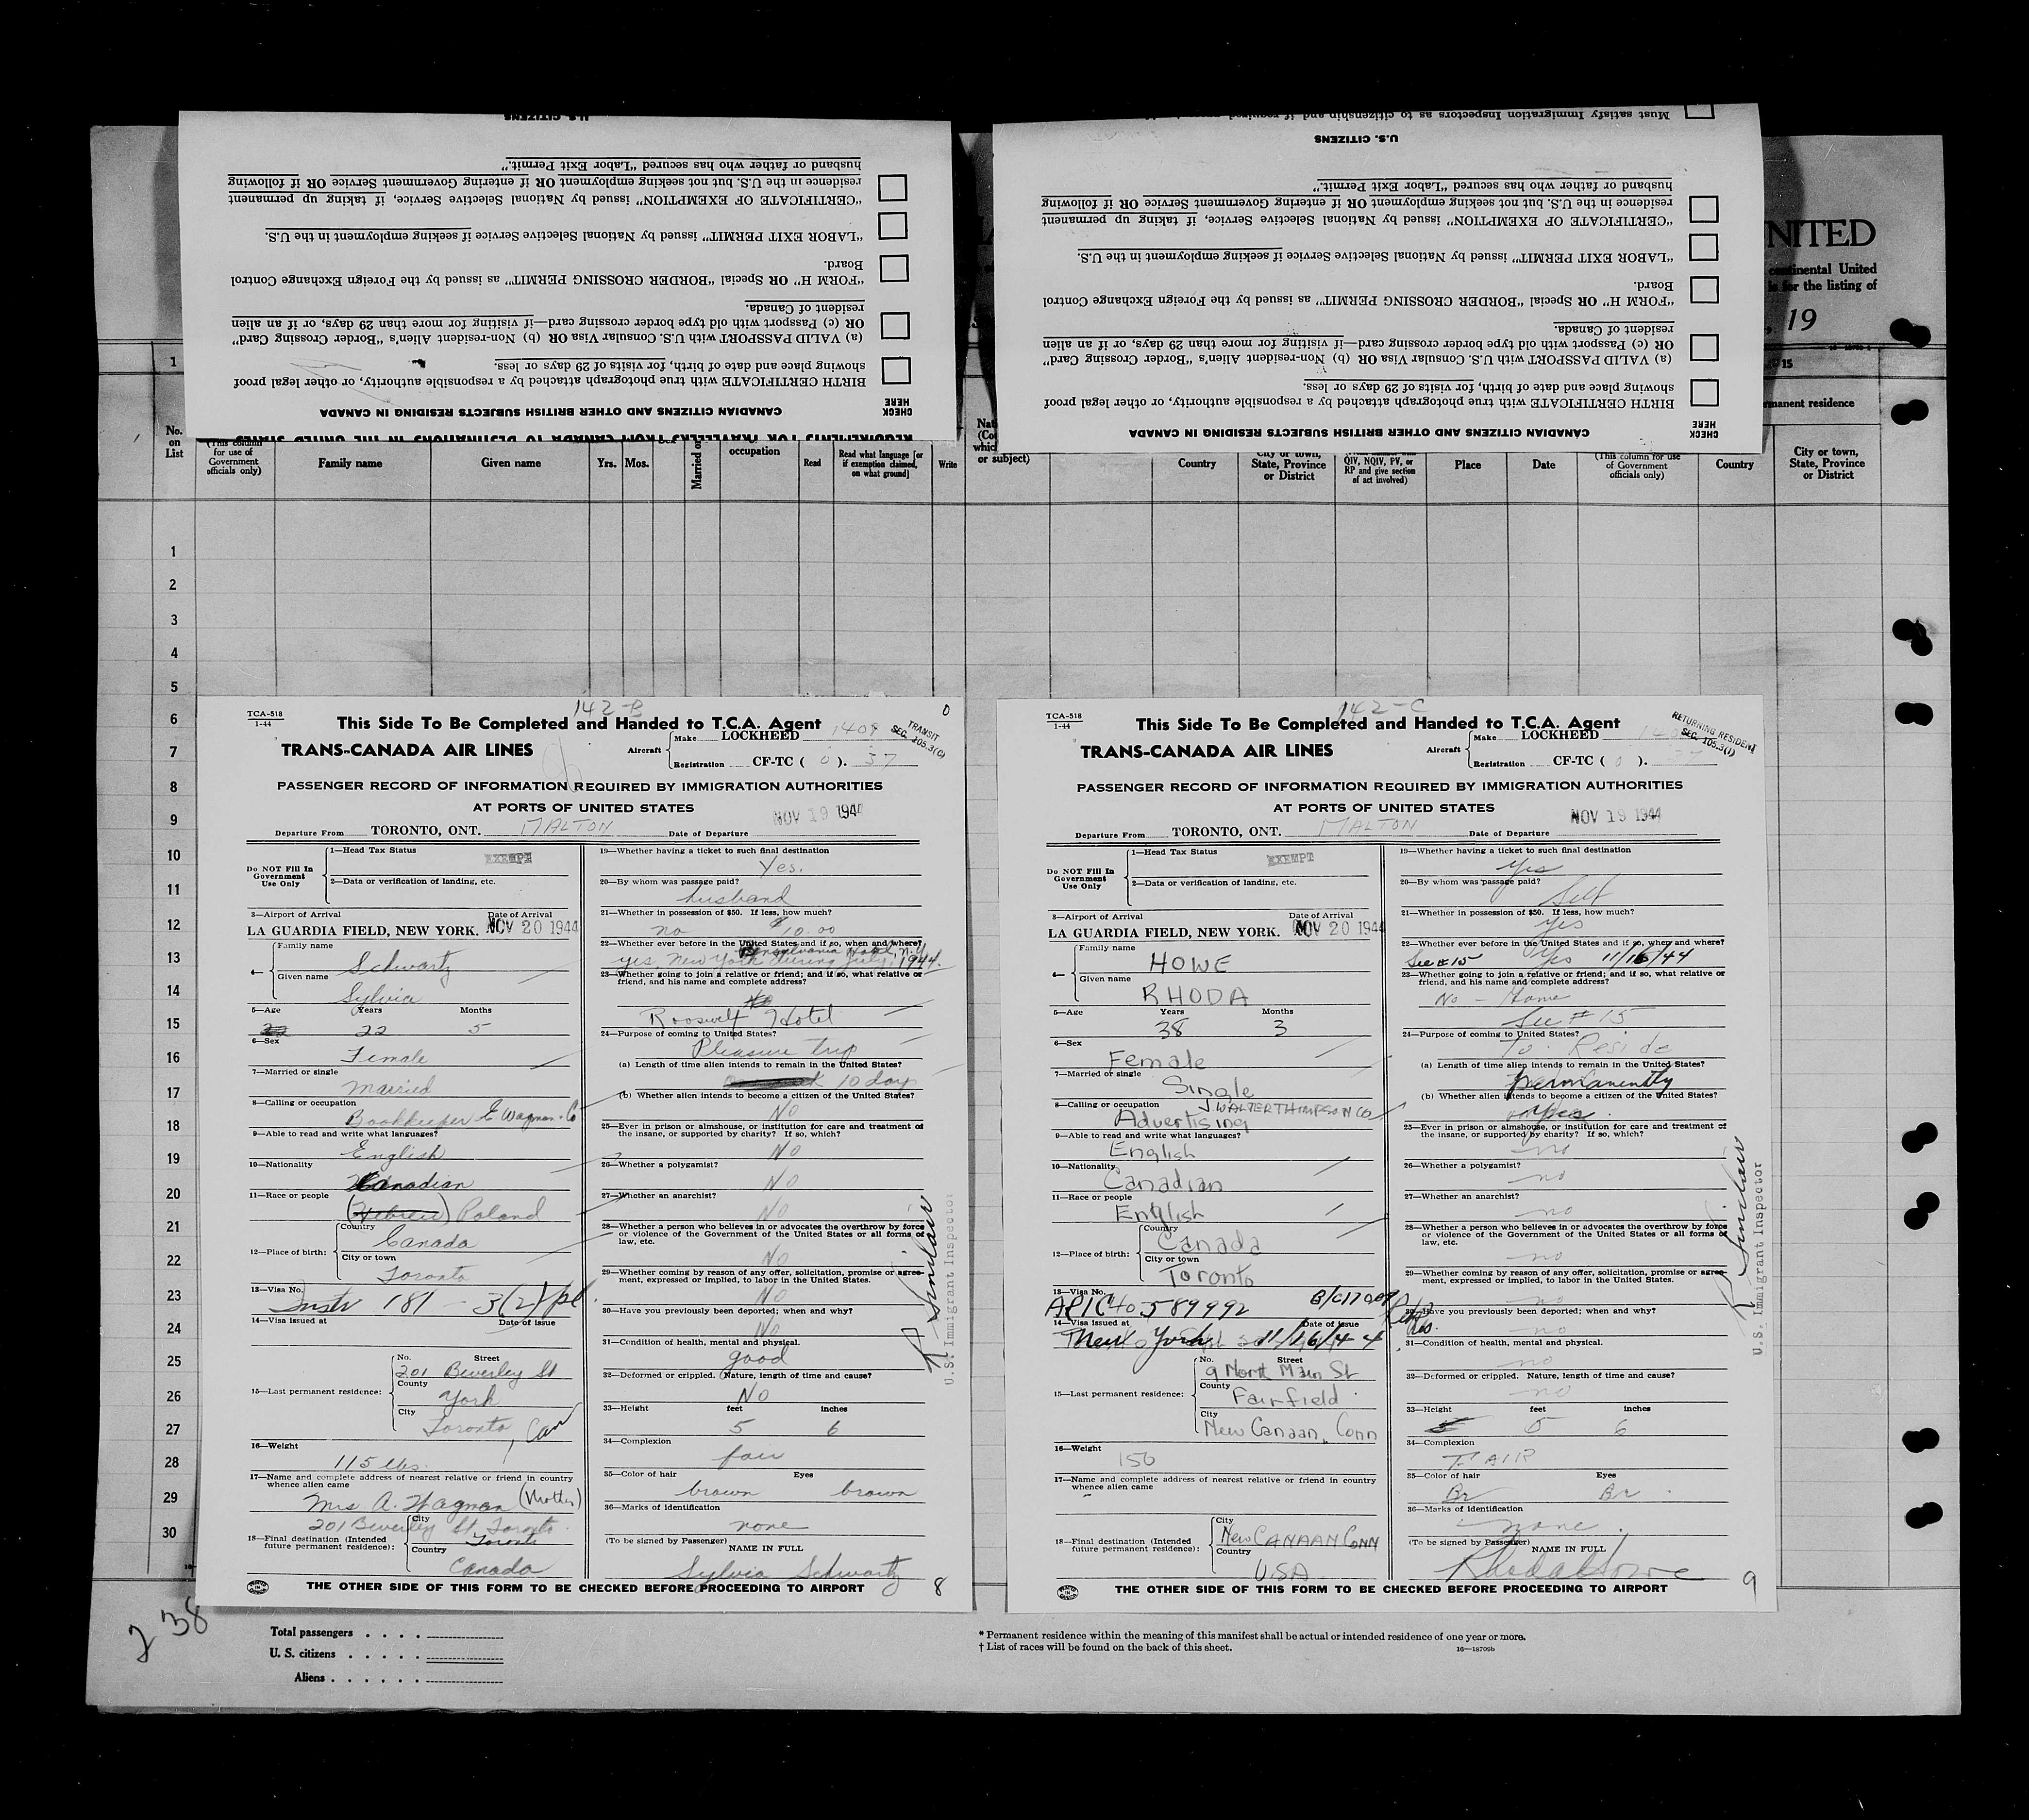 U.S. CITIZENS
husband or father who has secured "Labor Exit Permit."
residence in the U.S. but not seeking employment OR if entering Government Service OR if following
"CERTIFICATE OF EXEMPTION" issued by National Selective Service, if taking up permanent
"LABOR EXIT PERMIT" issued by National Selective Service if seeking employment in the U.S.
Board.
"FORM H" OR Special "BORDER CROSSING PERMIT" as issued by the Foreign Exchange Control
resident of Canada.
OR (c) Passport with old type border crossing card—if visiting for more than 29 days, or if an alien
(a) VALID PASSPORT with U.S. Consular Visa OR (b) Non-resident Alien's "Border Crossing Card"
showing place and date of birth, for visits of 29 days or less.
BIRTH CERTIFICATE with true photograph attached by a responsible authority, or other legal proof
CHECK HERE
CANADIAN CITIZENS AND OTHER BRITISH SUBJECTS RESIDING IN CANADA
REQUIREMENTS FOR TRAVELLERS FROM CANADA TO DESTINATIONS IN THE UNITED STATES
Must satisfy Immigration Inspectors as to citizenship and if required
U.S. CITIZENS
husband or father who has secured "Labor Exit Permit."
residence in the U.S. but not seeking employment OR if entering Government Service OR if following
"CERTIFICATE OF EXEMPTION" issued by National Selective Service, if taking up permanent
"LABOR EXIT PERMIT" issued by National Selective Service if seeking employment in the U.S.
Board.
"FORM H" OR Special "BORDER CROSSING PERMIT" as issued by the Foreign Exchange Control
resident of Canada.
OR (c) Passport with old type border crossing card—if visiting for more than 29 days, or if an alien
(a) VALID PASSPORT with U.S. Consular Visa OR (b) Non-resident Alien's "Border Crossing Card"
showing place and date of birth, for visits of 29 days or less.
BIRTH CERTIFICATE with true photograph attached by a responsible authority, or other legal proof
CHECK HERE
CANADIAN CITIZENS AND OTHER BRITISH SUBJECTS RESIDING IN CANADA
NITED
continental United
is for the listing of
19
1
15
manent residence
No. on List
(This column for use of Government officials only)
Family name
Given name
Yrs.
Mos.
Married or
occupation
Read
Read what language [or if exemption claimed, on what ground]
Write
or subject)
Country
City or town, State, Province or District
QIV, NQIV, PV, or RP and give section of act involved)
Place
Date
(This column for use of Government officials only)
Country
City or town, State, Province or District
1
2
3
4
5
6
7
8
9
10
11
12
13
14
15
16
17
18
19
20
21
22
23
24
25
26
27
28
29
30
142-B
TCA-518
1-44
This Side To Be Completed and Handed to T.C.A. Agent
TRANS-CANADA AIR LINES
Aircraft
Make LOCKHEED 1409
Registration CF-TC ( 0 ). 37
TRANSIT
SEC. 105.3(C)
PASSENGER RECORD OF INFORMATION REQUIRED BY IMMIGRATION AUTHORITIES
AT PORTS OF UNITED STATES
Departure From TORONTO, ONT. MALTON Date of Departure NOV 19 1944
Do NOT Fill In Government Use Only
1—Head Tax Status EXEMPT
2—Data or verification of landing, etc.
3—Airport of Arrival Date of Arrival
LA GUARDIA FIELD, NEW YORK. NOV 20 1944
4— Family name Schwartz
Given name Sylvia
5—Age Years Months
22 5
6—Sex
Female
7—Married or single
Married
8—Calling or occupation
Bookkeeper E Wagman Co
9—Able to read and write what languages?
English
10—Nationality
Canadian
11—Race or people
(Hebrew) Poland
12—Place of birth: Country
Canada
City or town
Toronto
13—Visa No.
Instr 181 - 3(2)
14—Visa issued at Date of issue
15—Last permanent residence: No. Street
201 Beverley St
County
York
City
Toronto, Can
16—Weight
115 lbs.
17—Name and complete address of nearest relative or friend in country whence alien came
Mrs A. Wagman (Mother)
201 Beverley St. Toronto
18—Final destination (Intended future permanent residence): City
Toronto
Country
Canada
19—Whether having a ticket to such final destination
Yes.
20—By whom was passage paid?
husband
21—Whether in possession of $50. If less, how much?
no $10.00
22—Whether ever before in the United States and if so, when and where?
Pennsylvania Hotel, N.Y.
yes, New York during July, 1944.
23—Whether going to join a relative or friend; and if so, what relative or friend, and his name and complete address?
No
Rooswelt Hotel
24—Purpose of coming to United States?
Pleasure trip
(a) Length of time alien intends to remain in the United States?
10 days
(b) Whether alien intends to become a citizen of the United States?
No
25—Ever in prison or almshouse, or institution for care and treatment of the insane, or supported by charity? If so, which?
No
26—Whether a polygamist?
No
27—Whether an anarchist?
No
28—Whether a person who believes in or advocates the overthrow by force or violence of the Government of the United States or all forms of law, etc.
No
29—Whether coming by reason of any offer, solicitation, promise or agreement, expressed or implied, to labor in the United States.
No
30—Have you previously been deported; when and why?
No
31—Condition of health, mental and physical.
good
32—Deformed or crippled. Nature, length of time and cause?
No
33—Height feet inches
5 6
34—Complexion
fair
35—Color of hair Eyes
brown brown
36—Marks of identification
none
(To be signed by Passenger) NAME IN FULL
Sylvia Schwartz
THE OTHER SIDE OF THIS FORM TO BE CHECKED BEFORE PROCEEDING TO AIRPORT
8
R Sinclair
U.S. Immigrant Inspector
142-C
TCA-518
1-44
This Side To Be Completed and Handed to T.C.A. Agent
TRANS-CANADA AIR LINES
Aircraft
Make LOCKHEED
Registration CF-TC ( 0 ). 37
RETURNING RESIDENT
SEC. 105.3(1)
PASSENGER RECORD OF INFORMATION REQUIRED BY IMMIGRATION AUTHORITIES
AT PORTS OF UNITED STATES
Departure From TORONTO, ONT. MALTON Date of Departure NOV 19 1944
Do NOT Fill In Government Use Only
1—Head Tax Status EXEMPT
2—Data or verification of landing, etc.
3—Airport of Arrival Date of Arrival
LA GUARDIA FIELD, NEW YORK. NOV 20 1944
4— Family name HOWE
Given name RHODA
5—Age Years Months
38 3
6—Sex
Female
7—Married or single
Single
8—Calling or occupation J WALTER THOMPSON CO
Advertising
9—Able to read and write what languages?
English
10—Nationality
Canadian
11—Race or people
English
12—Place of birth: Country
Canada
City or town
Toronto
13—Visa No.
589992
14—Visa issued at Date of issue
New York 11/16/44
15—Last permanent residence: No. Street
9 North Main St
County
Fairfield
City
New Canaan, Conn
16—Weight
156
17—Name and complete address of nearest relative or friend in country whence alien came
18—Final destination (Intended future permanent residence): City
New CANAAN CONN
Country
USA
19—Whether having a ticket to such final destination
yes
20—By whom was passage paid?
Self
21—Whether in possession of $50. If less, how much?
yes
22—Whether ever before in the United States and if so, when and where?
See #15 Yes 11/16/44
23—Whether going to join a relative or friend; and if so, what relative or friend, and his name and complete address?
No - Home
See #15
24—Purpose of coming to United States?
To Reside
(a) Length of time alien intends to remain in the United States?
permanently
(b) Whether alien intends to become a citizen of the United States?
yes
25—Ever in prison or almshouse, or institution for care and treatment of the insane, or supported by charity? If so, which?
no
26—Whether a polygamist?
no
27—Whether an anarchist?
no
28—Whether a person who believes in or advocates the overthrow by force or violence of the Government of the United States or all forms of law, etc.
no
29—Whether coming by reason of any offer, solicitation, promise or agreement, expressed or implied, to labor in the United States.
no
30—Have you previously been deported; when and why?
no
31—Condition of health, mental and physical.
no
32—Deformed or crippled. Nature, length of time and cause?
no
33—Height feet inches
5 6
34—Complexion
FAIR
35—Color of hair Eyes
Br Br
36—Marks of identification
none
(To be signed by Passenger) NAME IN FULL
Rhoda Howe
THE OTHER SIDE OF THIS FORM TO BE CHECKED BEFORE PROCEEDING TO AIRPORT
9
R Sinclair
U.S. Immigrant Inspector
238
Total passengers
U. S. citizens
Aliens
* Permanent residence within the meaning of this manifest shall be actual or intended residence of one year or more.
† List of races will be found on the back of this sheet.
16—18709b